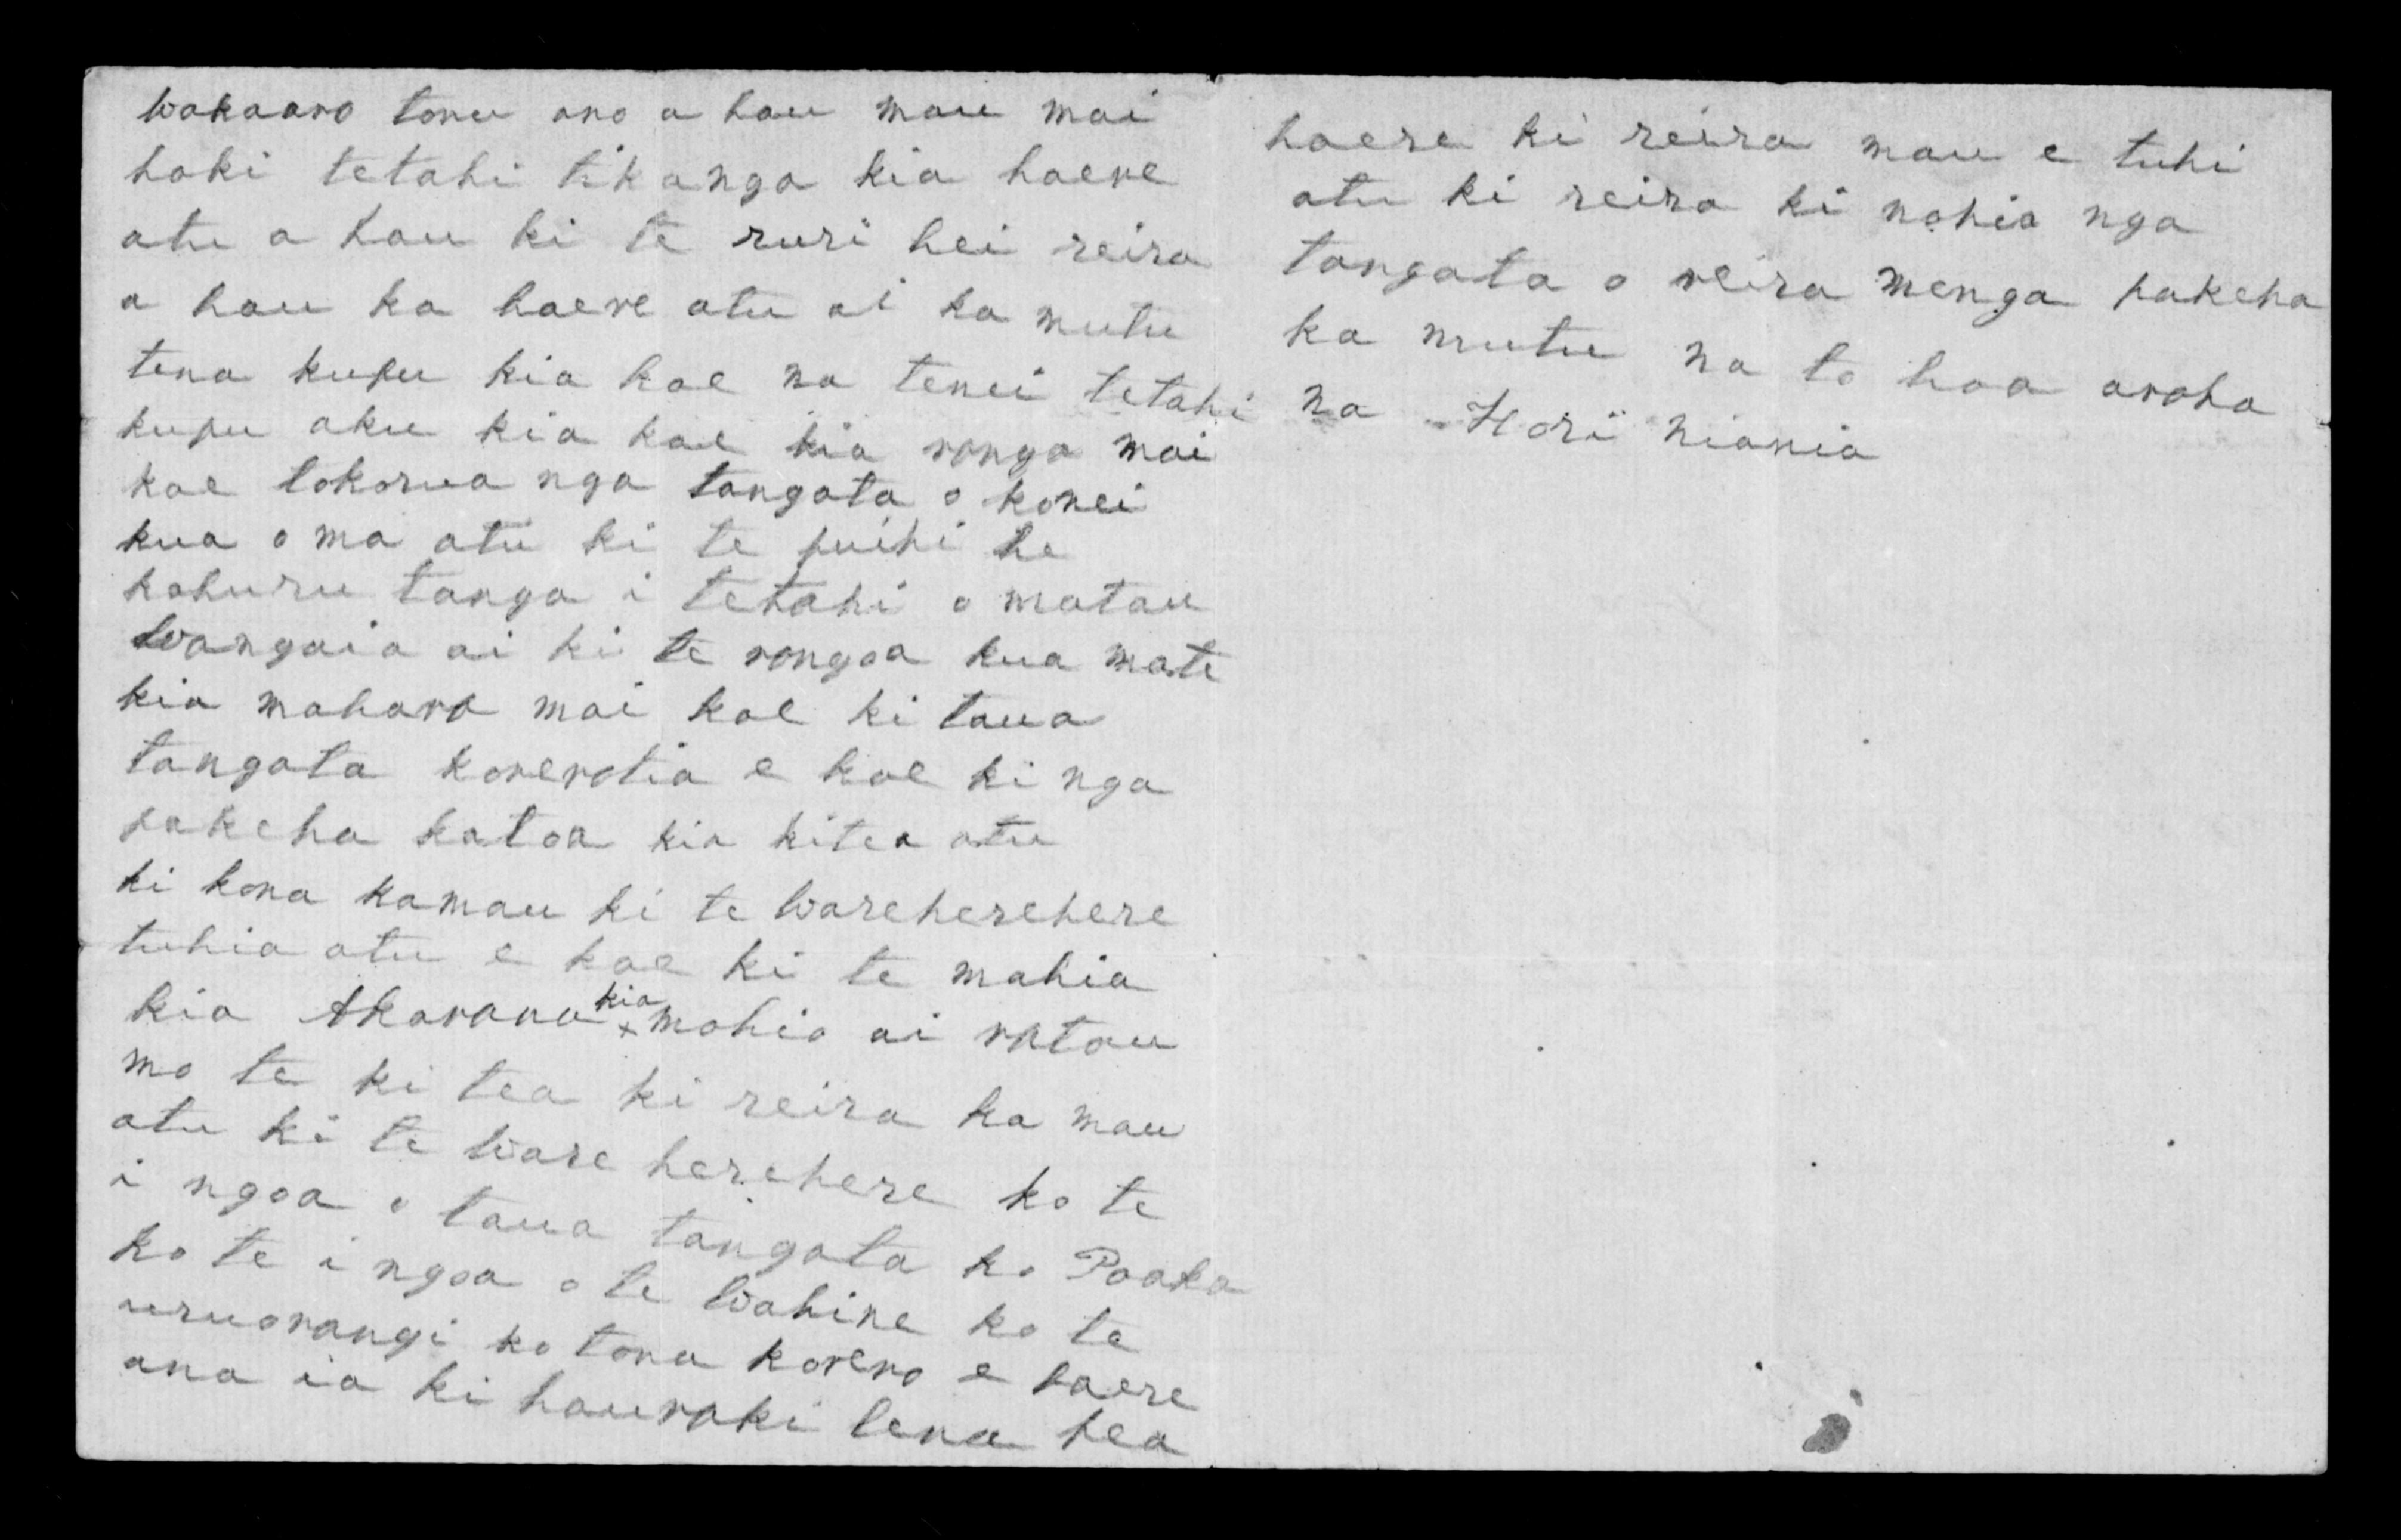 wakaaro tonu ano a hau mau mai
hoki tetahi tikanga kia haere
atu a hau ki te ruri hei reira
a hau ka haere atu ai ka mutu
tena kupu kia koe na tenei tetahi
kupu aku kia koe kia rongo mai
koe tokorua nga tangata o konei
kua oma atu ki te puihi he
kohuru tanga i tetahi o matau
wangaia ai ki te rongoa kua mate
kia mahara mai koe ki taua
tangata korerotia e koe ki nga
pakeha katoa kia kitea atu
ki kona kamau ki te wareherehere
tuhia atu e koe ki te mahia
kia Akarana kia mohio ai ratou
mo te ki tea ki reira ka mau
atu ki te ware herehere ko te
i ngoa o taua tangata ko Paaka
ko te i ngoa o te wahine ko te
uruorangi ko tona korero e haere
ana ia ki hauraki tena pea
haere ki reira mau e tuhi
atu ki reira ki nohia nga
tangata o reira menga pakeha
ka mutu na to hoa aroha
na Hori niania